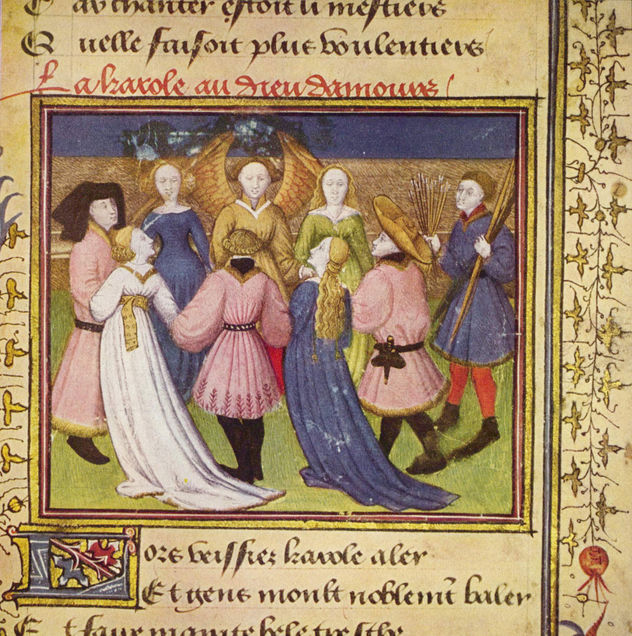 C ar chanter estoit li mestiers
Q uelle faisoit plus voulentiers
La karole au dieu damours
Lors veissiez karole aler
Et gens moult noblem̄t baler
E t faire mainte bele tresche